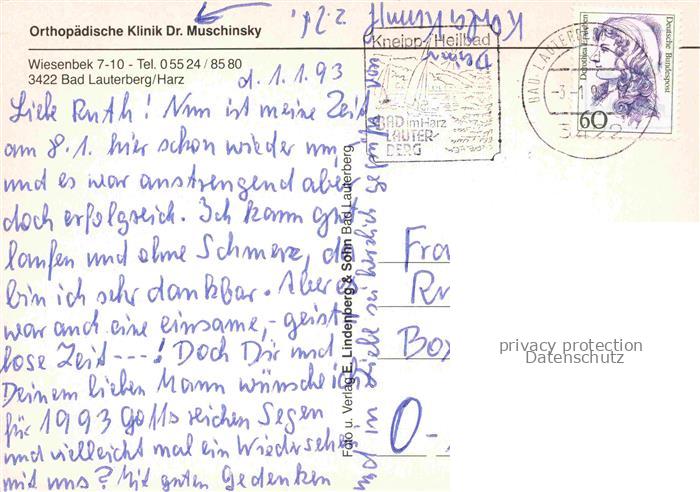 Orthopädische Klinik Dr. Muschinsky
Wiesenbek 7-10 - Tel. 0 55 24 / 85 80
3422 Bad Lauterberg/Harz
d. 1.1.93
Liebe Ruth! Nun ist meine Zeit
am 8.1. hier schon wieder um,
und es war anstrengend aber
doch erfolgreich. Ich kann gut
laufen und ohne Schmerz, da
bin ich sehr dankbar. Aber es
war auch eine einsame, - geist
lose Zeit ---! Doch Dir und
Deinem lieben Mann wünsche ich
für 1993 Gotts reichen Segen
und vielleicht mal ein Wiedersehen
mit uns? Mit guten Gedenken
und in Liebe sei herzlich gegrüßt von
Deiner
z. Zt.
Foto u. Verlag E. Lindenberg & Sohn Bad Lauterberg
Kneipp-Heilbad
BAD im Harz
LAUTER-
BERG
BAD LAUTERBERG
3422
Deutsche Bundespost
60
Fra
Ru
Box
O-
privacy protection
Datenschutz